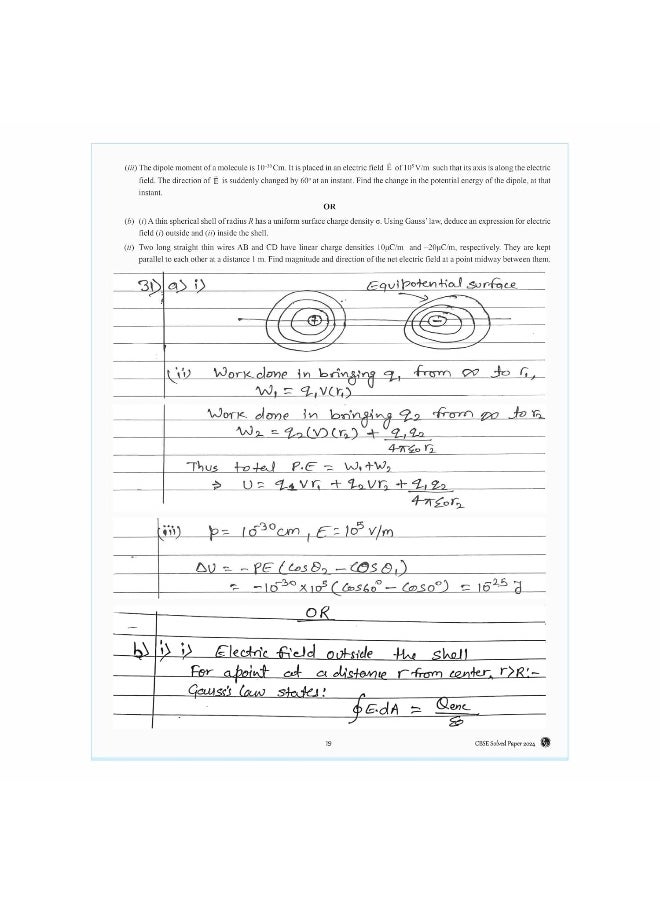 (iii) The dipole moment of a molecule is 10⁻³⁰ Cm. It is placed in an electric field E⃗ of 10⁵V/m such that its axis is along the electric
field. The direction of E⃗ is suddenly changed by 60° at an instant. Find the change in the potential energy of the dipole, at that
instant.
OR
(b) (i) A thin spherical shell of radius R has a uniform surface charge density σ. Using Gauss' law, deduce an expression for electric
field (i) outside and (ii) inside the shell.
(ii) Two long straight thin wires AB and CD have linear charge densities 10μC/m and –20μC/m, respectively. They are kept
parallel to each other at a distance 1 m. Find magnitude and direction of the net electric field at a point midway between them.
31) a) i) Equipotential surface
+ −
(ii) Work done in bringing q₁ from ∞ to r₁,
W₁ = q₁V(r₁)
Work done in bringing q₂ from ∞ to r₂
W₂ = q₂(V)(r₂) + q₁q₂
4πε₀r₂
Thus total P.E = W₁+W₂
⇒ U = q₁Vr₁ + q₂Vr₂ + q₁q₂
4πε₀r₂
(iii) p = 10⁻³⁰cm, E = 10⁵ V/m
ΔU = -PE (cosθ₂ - cosθ₁)
= -10⁻³⁰ × 10⁵ (cos60° - cos0°) = 10⁻²⁵ J
OR
b) i) i) Electric field outside the shell
For a point at a distance r from center, r>R:-
Gauss's law states:
∮E.dA = Qenc
ε₀
19
CBSE Solved Paper 2024